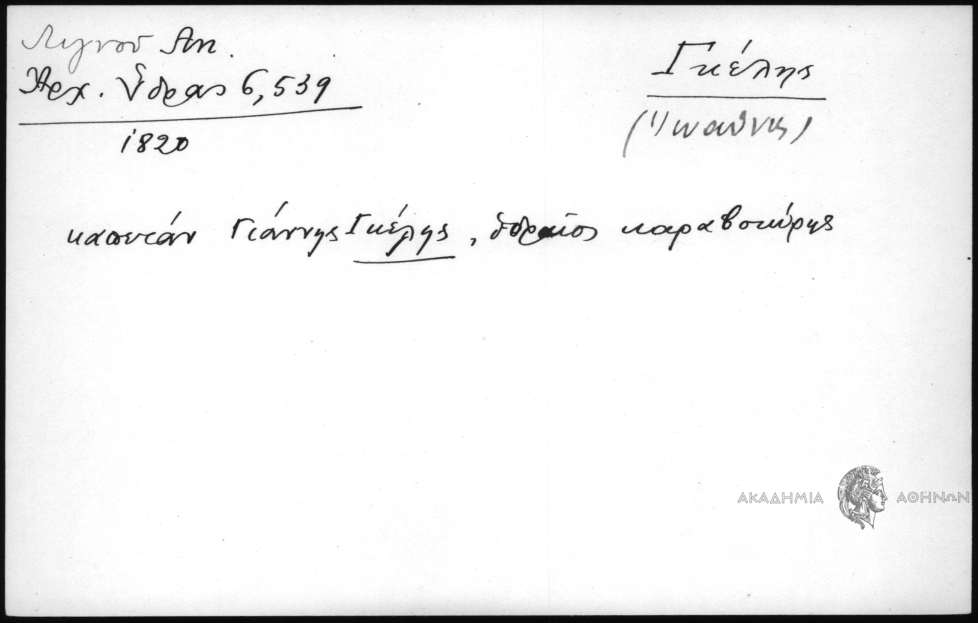 Λιγνοῦ Ἀν.
Ἀρχ. Ὕδρας 6,539
1820
Γκέλης
(Ἰωάννης)
καπετάν Γιάννης Γκέλης, ὑδραῖος καραβοκύρης
ΑΚΑΔΗΜΙΑ ΑΘΗΝΩΝ